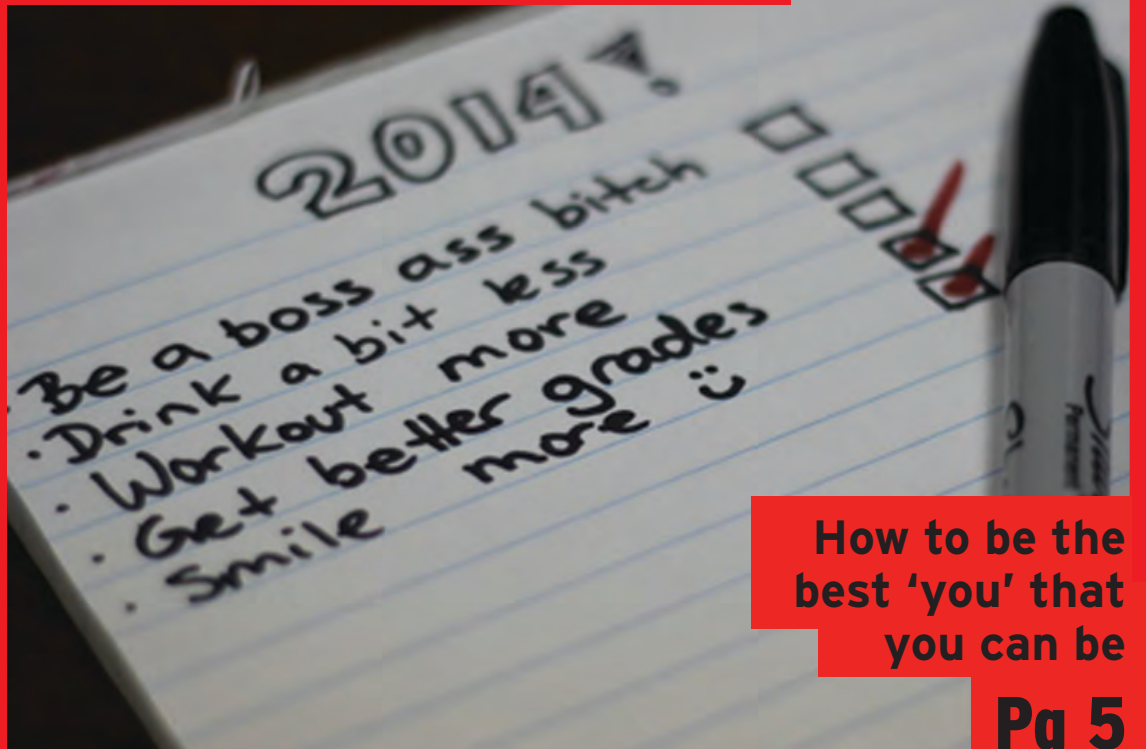 2014!
• Be a boss ass bitch
• Drink a bit less
• Workout more
• Get better grades
• Smile more :)
Permanent
How to be the
best ‘you’ that
you can be
Pg 5